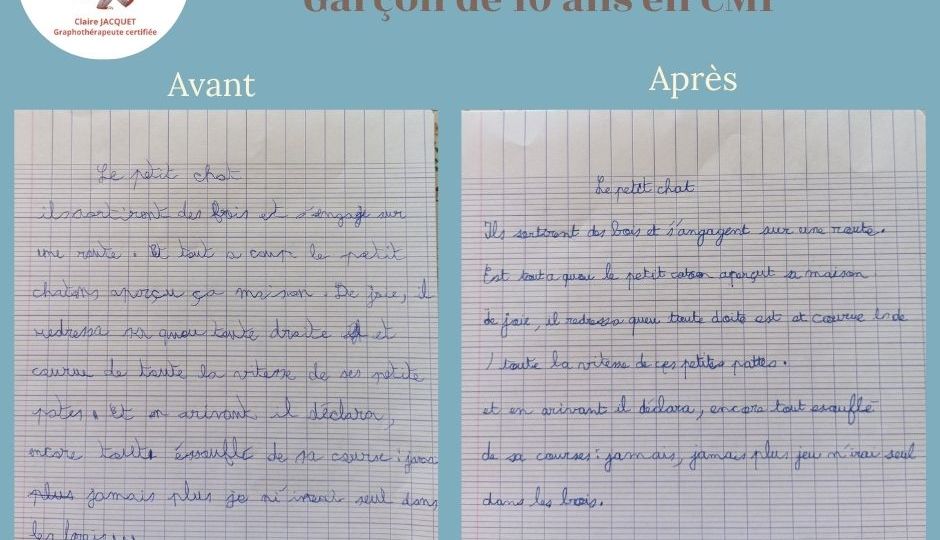 Claire JACQUET
Graphothérapeute certifiée
Garçon de 10 ans en CM1
Avant
Après
Le petit chat
ils sortiront des bois et s'engage sur
une route. Et tout a coup le petit
chatons aperçu ça maison. De joie, il
redressa sa queu toute droite et
courue de toute la vitesse de ses petite
pates. Et en arivant il déclara,
encore tout éssouflé de sa course : jamai
plus jamais plus je n'irai seul dans
les bois...
Le petit chat
Ils sortirent des bois et s'angagent sur une route.
Est tout a queu le petit catson aperçut sa maison
de joie, il redressa queu toute doite est at courue
/ toute la vitesse de ces petites pattes.
et en arivant il déclara, encore tout esouflé
de sa courses : jamais, jamais plus jeu n'irai seul
dans les bois.